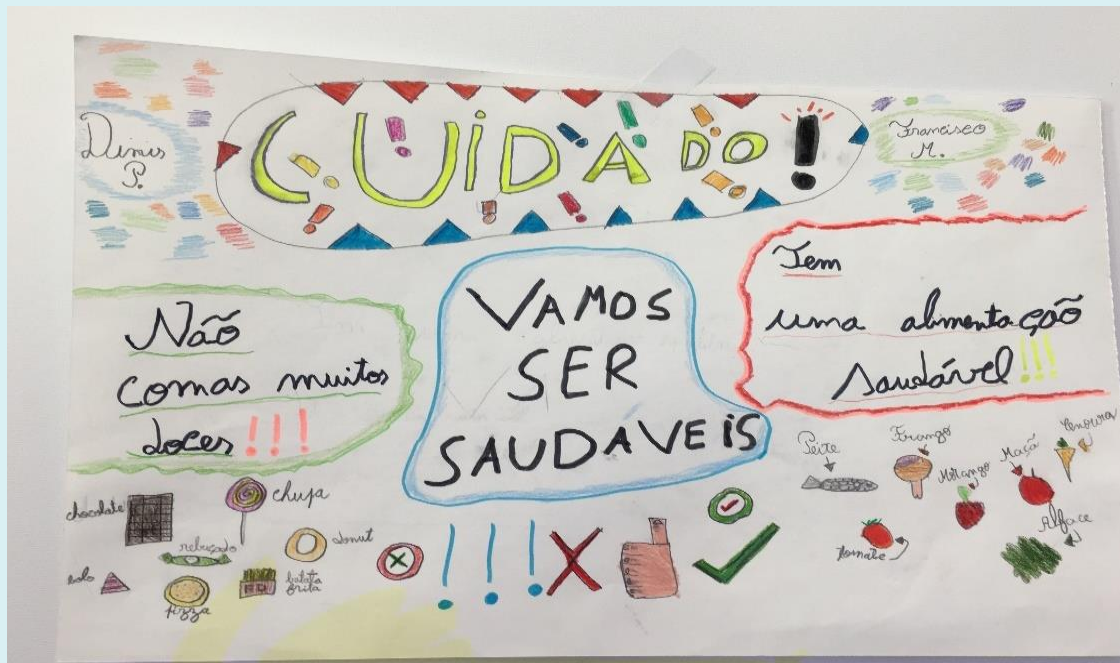 Dinis
P.
CUIDADO!
Francisco
M.
Não
comas muitos
doces!!!
VAMOS
SER
SAUDAVEIS
Tem
uma alimentação
saudável!!!
chocolate
chupa
rebuçado
donut
bolo
pizza
batata
frita
!!!
Peite
Frango
Morango
Maçã
Cenoura
tomate
Alface